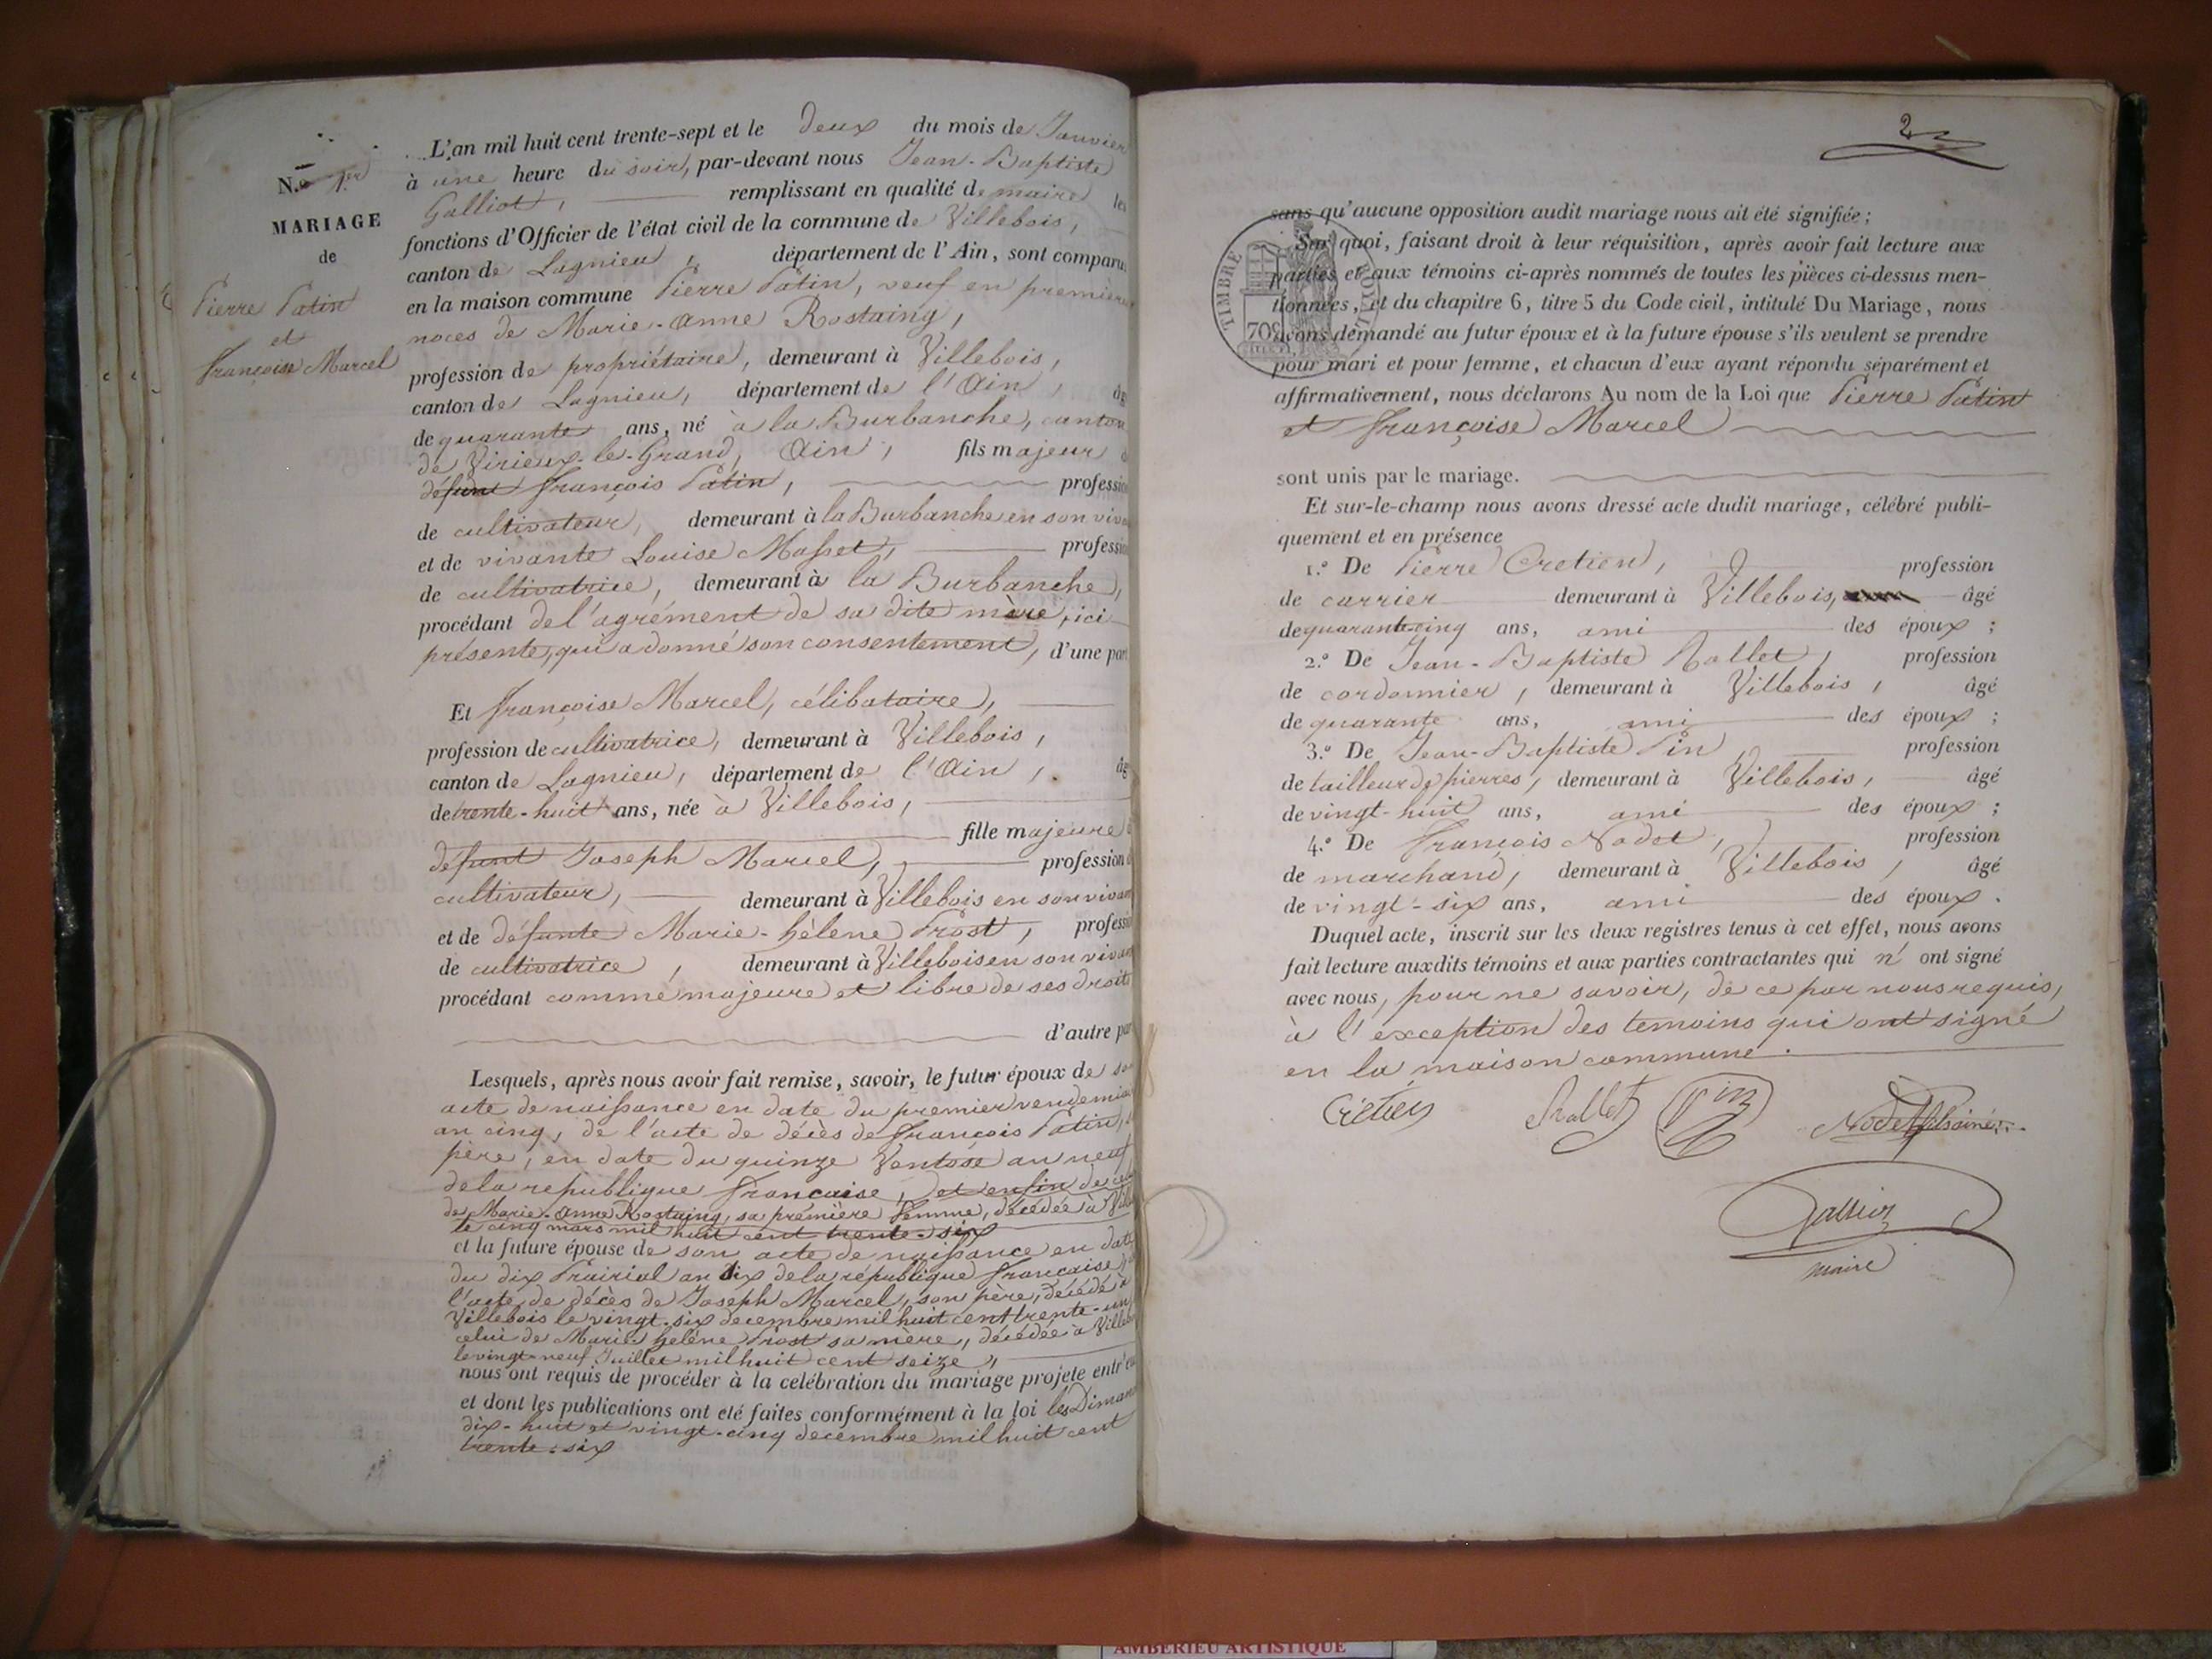 N.o 1er
MARIAGE
de
Pierre Patin
et
françoise Marcel
L'an mil huit cent trente-sept et le deux du mois de Janvier
à une heure du soir, par-devant nous Jean-Baptiste
Galliot, remplissant en qualité de maire les
fonctions d'Officier de l'état civil de la commune de Villebois,
canton de Lagnieu, département de l'Ain, sont comparu
en la maison commune Pierre Patin, veuf en premiere
noces de Marie-Anne Rostaing,
profession de propriétaire, demeurant à Villebois,
canton de Lagnieu, département de l'Ain, âg
de quarante ans, né à la Burbanche, canton
de Virieux-le-Grand, Ain, fils majeur d
défunt françois Patin, professio
de cultivateur, demeurant à la Burbanche en son viva
et de vivante Louise Masset, professio
de cultivatrice, demeurant à la Burbanche,
procédant de l'agrément de sa dite mère, ici
présente, qui a donné son consentement, d'une par
Et françoise Marcel, célibataire,
profession de cultivatrice, demeurant à Villebois,
canton de Lagnieu, département de l'Ain, âg
de trente-huit ans, née à Villebois,
fille majeure d
défunt Joseph Marcel, profession d
cultivateur, demeurant à Villebois en son vivan
et de défunte Marie-hélene Prost, professio
de cultivatrice, demeurant à Villebois en son vivan
procédant comme majeure et libre de ses droits
d'autre par
Lesquels, après nous avoir fait remise, savoir, le futur époux de so
acte de naissance en date du premier vendemia
an cinq, de l'acte de décès de françois Patin, s
père, en date du quinze Ventose an neuf
de la republique francaise, et enfin de celu
de Marie-Anne Rostaing, sa première femme, décédée à Ville
le cinq mars mil huit cent trente-six
et la future épouse de son acte de naissance en dat
du dix Prairial an dix de la république francaise,
l'acte de décès de Joseph Marcel, son père, décédé à
Villebois le vingt-six decembre mil huit cent trente-un
celui de Marie hélène Prost sa mère, décédée à Villeb
le vingt-neuf Juillet mil huit cent seize,
nous ont requis de procéder à la celébration du mariage projete entr'eu
et dont les publications ont eté faites conformément à la loi les Diman
dix-huit et vingt-cinq decembre mil huit cent
trente-six
2
sans qu'aucune opposition audit mariage nous ait été signifiée;
Sur quoi, faisant droit à leur réquisition, après avoir fait lecture aux
parties et aux témoins ci-après nommés de toutes les pièces ci-dessus men-
tionnées, et du chapitre 6, titre 5 du Code civil, intitulé Du Mariage, nous
avons demandé au futur époux et à la future épouse s'ils veulent se prendre
pour mari et pour femme, et chacun d'eux ayant répondu séparément et
affirmativement, nous déclarons Au nom de la Loi que Pierre Patin
et françoise Marcel
sont unis par le mariage.
Et sur-le-champ nous avons dressé acte dudit mariage, célébré publi-
quement et en présence
1.o De Pierre Cretien, profession
de carrier demeurant à Villebois, âgé
de quarante cinq ans, ami des époux;
2.o De Jean-Baptiste Rallet, profession
de cordonnier, demeurant à Villebois, âgé
de quarante ans, ami des époux;
3.o De Jean-Baptiste Pin, profession
de tailleur de pierres, demeurant à Villebois, âgé
de vingt-huit ans, ami des époux;
4.o De François Nodet, profession
de marchand, demeurant à Villebois, âgé
de vingt-six ans, ami des époux.
Duquel acte, inscrit sur les deux registres tenus à cet effet, nous avons
fait lecture auxdits témoins et aux parties contractantes qui n'ont signé
avec nous, pour ne savoir, de ce par nous requis,
à l'exception des temoins qui ont signé
en la maison commune.
Crétien Rallet Pin Nodet
Galliot
maire
TIMBRE
70c
AMBERIEU ARTISTIQUE